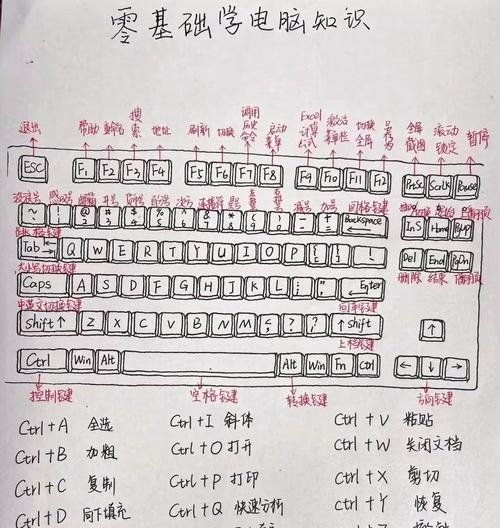 零基础学电脑知识
退出 帮助 重命名 搜索 地址 刷新 切换 调用历史命令 启动菜单 Excel计算公式 激活菜单栏 切换全屏 全屏截图 滚动锁定 暂停
ESC F1 F2 F3 F4 F5 F6 F7 F8 F9 F10 F11 F12 PrtSc ScrLK Pause
Backspace Ins Home PgUp
Tab Q W E R T Y U I O P Del End PgDn
大小写切换键 删除 结束
Caps A S D F G H J K L Enter
中英文切换键 回车键
Shift↑ Z X C V B N M ↑Shift ↑
上档键
Ctrl Win Alt Alt Win Fn Ctrl ← ↓ →
控制键 空格键 转换键 方向键
Ctrl+A 全选 Ctrl+I 斜体 Ctrl+V 粘贴
Ctrl+B 加粗 Ctrl+O 打开 Ctrl+W 关闭文档
Ctrl+C 复制 Ctrl+P 打印 Ctrl+X 剪切
Ctrl+D 向下填充 Ctrl+Q 快速分析 Ctrl+Y 恢复